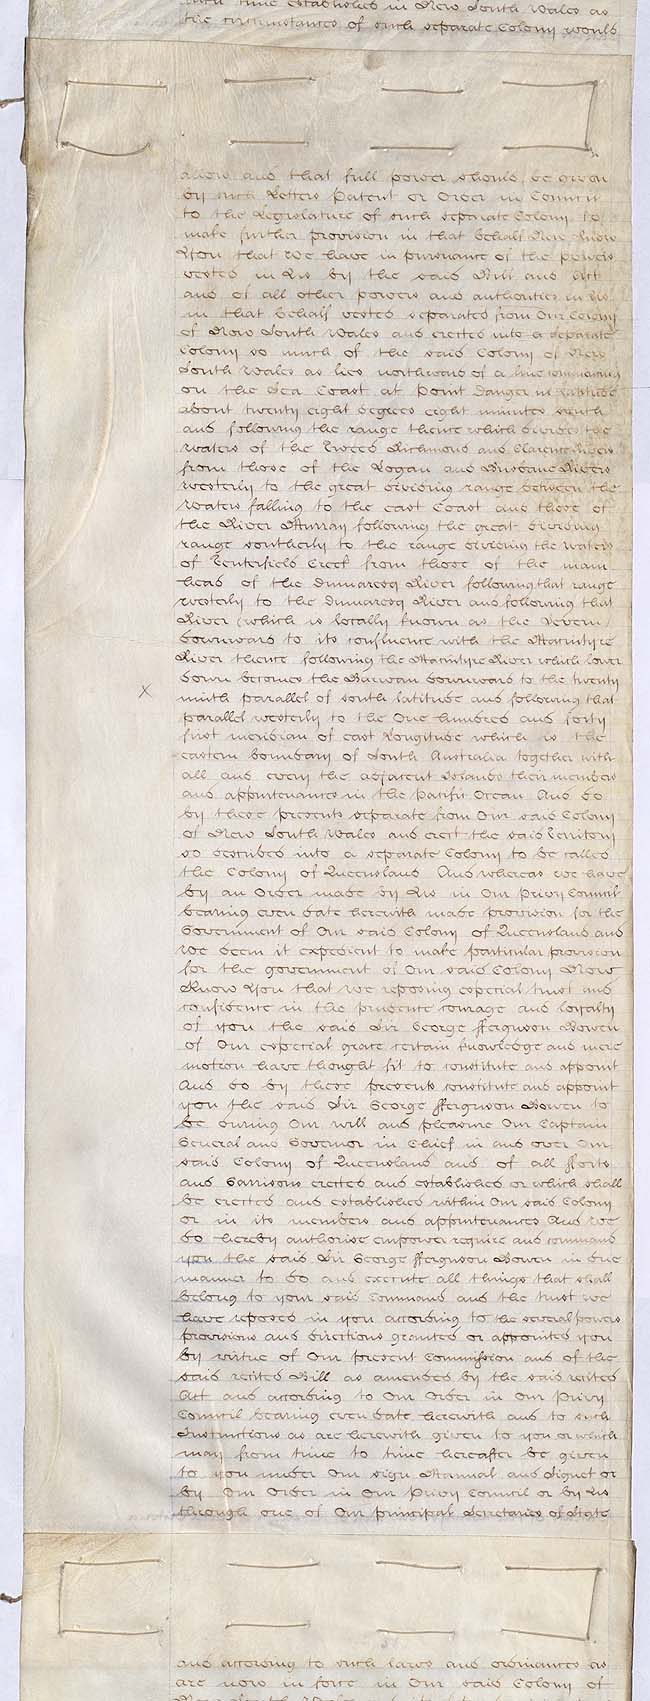 time established in New South Wales as
the circumstances of such separate Colony would
allow and that full power should be given
by such Letters Patent or Order in Council
to the Legislature of such separate Colony to
make further provision in that behalf Now Know
You that We have in pursuance of the powers
vested in Us by the said Bill and Act
and of all other powers and authorities in Us
in that behalf vested separated from Our Colony
of New South Wales and erected into a separate
Colony so much of the said Colony of New
South Wales as lies northward of a line commencing
on the Sea Coast at Point Danger in latitude
about twenty eight degrees eight minutes south
and following the range thence which divides the
waters of the Tweed Richmond and Clarence Rivers
from those of the Logan and Brisbane Rivers
westerly to the great dividing range between the
waters falling to the east Coast and those of
the River Murray following the great dividing
range southerly to the range dividing the waters
of Tenterfield Creek from those of the main
head of the Dumaresq River following that range
westerly to the Dumaresq River and following that
River (which is locally known as the Severn)
downward to its confluence with the Macintyre
River thence following the Macintyre River which lower
down becomes the Barwan downward to the twenty
X
ninth parallel of south latitude and following that
parallel westerly to the One hundred and forty
first meridian of east Longitude which is the
eastern boundary of South Australia together with
all and every the adjacent Islands their members
and appurtenances in the Pacific Ocean And do
by these presents separate from Our said Colony
of New South Wales and erect the said Territory
so described into a separate Colony to be called
the Colony of Queensland And whereas We have
by an Order made by Us in Our Privy Council
bearing even date herewith made provision for the
Government of Our said Colony of Queensland and
We deem it expedient to make particular provision
for the government of Our said Colony Now
Know You that We reposing especial trust and
confidence in the prudence courage and loyalty
of you the said Sir George Fferguson Bowen
of Our especial grace certain knowledge and mere
motion have thought fit to constitute and appoint
And do by these presents constitute and appoint
you the said Sir George Fferguson Bowen to
be during Our will and pleasure Our Captain
General and Governor in Chief in and over Our
said Colony of Queensland and of all fforts
and Garrisons erected and established or which shall
be erected and established within Our said Colony
or in its members and appurtenances And We
do hereby authorise empower require and command
you the said Sir George Fferguson Bowen in due
manner to do and execute all things that shall
belong to your said Command and the trust We
have reposed in you according to the several powers
provisions and directions granted or appointed you
by virtue of Our present Commission and of the
said recited Bill as amended by the said recited
Act and according to Our Order in Our Privy
Council bearing even date herewith and to such
Instructions as are herewith given to you or which
may from time to time hereafter be given
to you under Our sign Manual and Signet or
by Our Order in Our Privy Council or by Us
through one of Our principal Secretaries of State
and according to such laws and ordinances as
are now in force in Our said Colony of